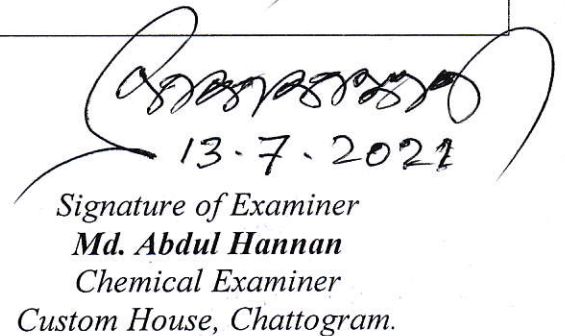 13.7.2021
Signature of Examiner
Md. Abdul Hannan
Chemical Examiner
Custom House, Chattogram.